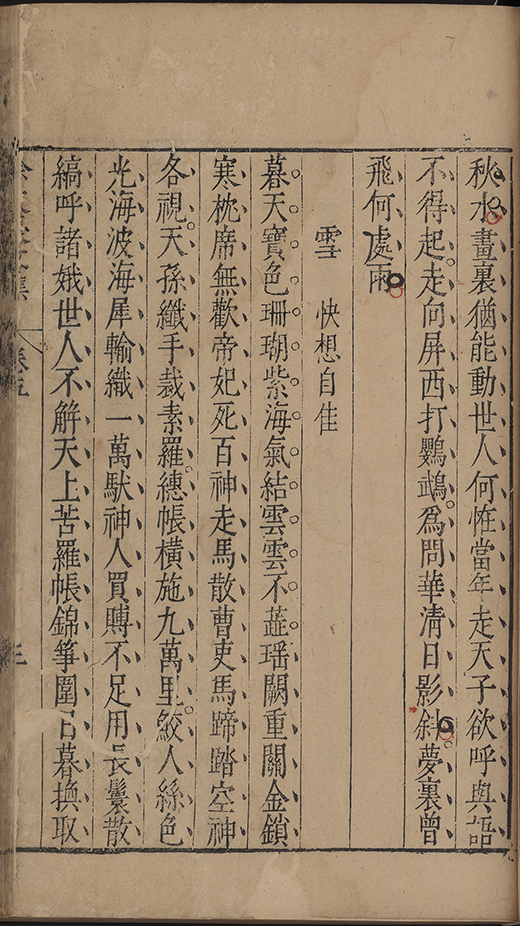 秋水畫裏猶能動世人何恠當年走天子欲呼與語
不得起走向屏西打鸚鵡爲問華清日影斜夢裏曾
飛何處雨
雪 快想自佳
暮天寶色珊瑚紫海氣結雲雲不蘂瑶闕重關金鎖
寒枕席無歡帝妃死百神走馬散曹吏馬蹄踏空神
各視天孫纖手裁素羅繐帳橫施九萬里鮫人絲色
光海波海犀輸織一萬馱神人買賻不足用長鬟散
縞呼諸娥世人不解天上苦羅帳錦筝圍日暮換取
集 卷五
三